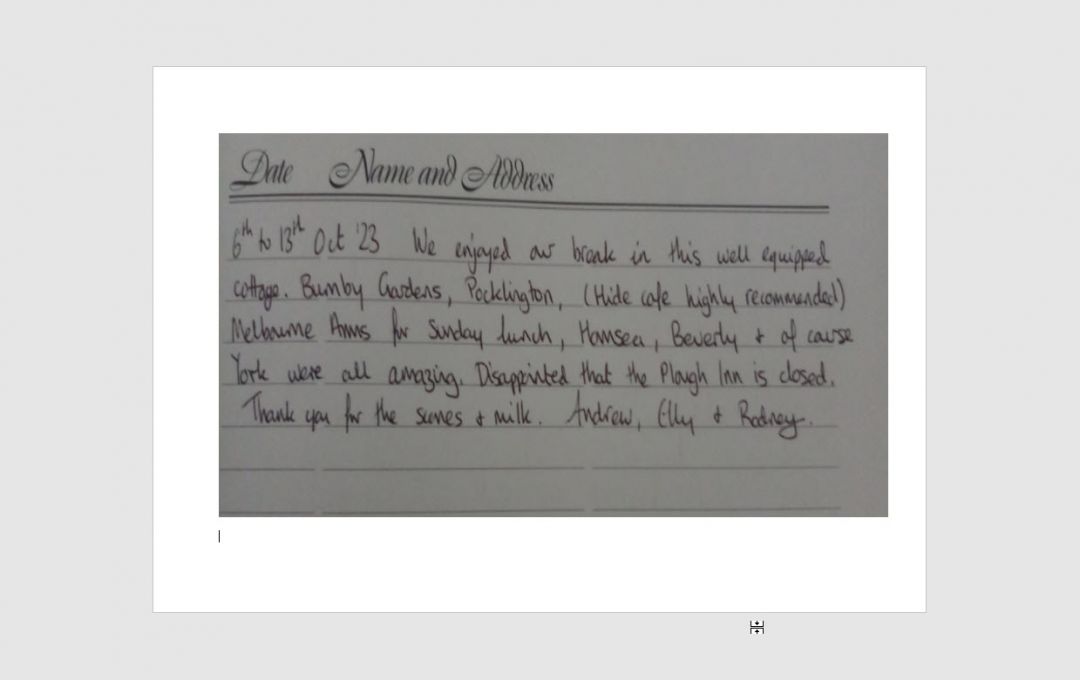 Date Name and Address
6th to 13th Oct '23 We enjoyed our break in this well equipped
cottage. Burnby Gardens, Pocklington, (Hide cafe highly recommended)
Melbourne Arms for Sunday lunch, Hornsea, Beverly & of cause
York were all amazing. Disappointed that the Plough Inn is closed.
Thank you for the scones & milk. Andrew, Elly & Rodney.